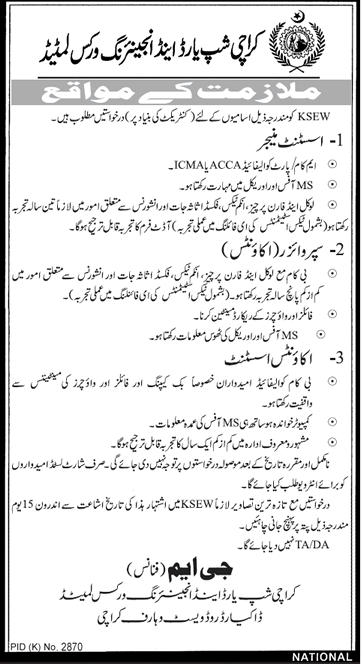 کراچی شپ یارڈ اینڈ انجینئرنگ ورکس لمیٹڈ
ملازمت کے مواقع
KSEW کو مندرجہ ذیل اسامیوں کے لئے (کنٹریکٹ کی بنیاد پر) درخواستیں مطلوب ہیں۔
1- اسسٹنٹ منیجر
ایم کام/پارٹ کوالیفائیڈ ACCA یا ICMA۔
MS آفس اور اوریکل میں مہارت رکھتا ہو۔
لوکل اینڈ فارن پرچیز، انکم ٹیکس، فکسڈ اثاثہ جات اور انشورنس سے متعلق امور میں لازماً تین سالہ تجربہ
رکھتا ہو (بشمول ٹیکس اسٹیٹمنٹس کی ای فائلنگ میں عملی تجربہ) آڈٹ فرم کا تجربہ قابل ترجیح ہوگا۔
2- سپروائزر (اکاؤنٹس)
بی کام مع لوکل اینڈ فارن پرچیز، انکم ٹیکس، فکسڈ اثاثہ جات اور انشورنس سے متعلق امور میں
کم از کم پانچ سالہ تجربہ رکھتا ہو۔ (بشمول ٹیکس اسٹیٹمنٹس کی ای فائلنگ میں عملی تجربہ)۔
فائلز اور واؤچرز کے ریکارڈ مینٹین کرنا۔
MS آفس اور اوریکل کی ٹھوس معلومات رکھتا ہو۔
3- اکاؤنٹس اسسٹنٹ
بی کام کوالیفائیڈ امیدواران خصوصاً بک کیپنگ اور فائلز اور واؤچرز کی مینٹیننس سے
واقفیت رکھتا ہو۔
کمپیوٹر خواندہ ہو ساتھ ہی MS آفس کی عمدہ معلومات۔
مشہور و معروف ادارہ میں کم از کم ایک سال کا تجربہ قابل ترجیح ہوگا۔
نامکمل اور مقررہ تاریخ کے بعد موصولہ درخواستوں پر توجہ نہیں دی جائے گی۔ صرف شارٹ لسٹڈ امیدواروں
کو برائے انٹرویو طلب کیا جائے گا۔
درخواستیں مع تازہ ترین تصاویر لازماً KSEW میں اشتہار ہذا کی تاریخ اشاعت سے اندرون 15 یوم
مندرجہ ذیل پتہ پر پہنچ جانی چاہئیں۔
TA/DA نہیں دیا جائے گا۔
جی ایم (فنانس)
کراچی شپ یارڈ اینڈ انجینئرنگ ورکس لمیٹڈ
ڈاکیارڈ روڈ ویسٹ وہارف کراچی
PID (K) No. 2870
NATIONAL